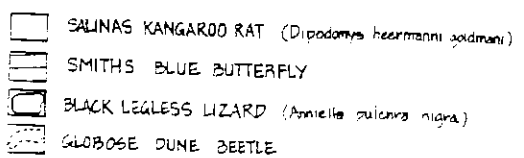 SALINAS KANGAROO RAT (Dipodomys heermanni goldmani)
SMITHS BLUE BUTTERFLY
BLACK LEGLESS LIZARD (Anniella pulchra nigra)
GLOBOSE DUNE BEETLE